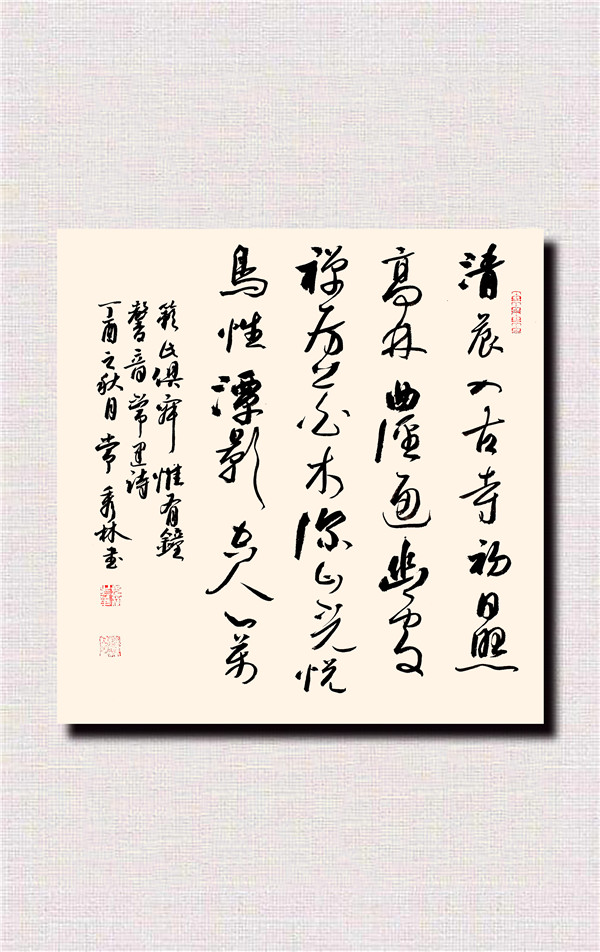 清晨入古寺初日照
高林曲徑通幽處
禪房花木深山光悦
鳥性潭影空人心萬
籁此俱寂惟有鐘
磬音常建詩
丁酉之秋月常秀林書